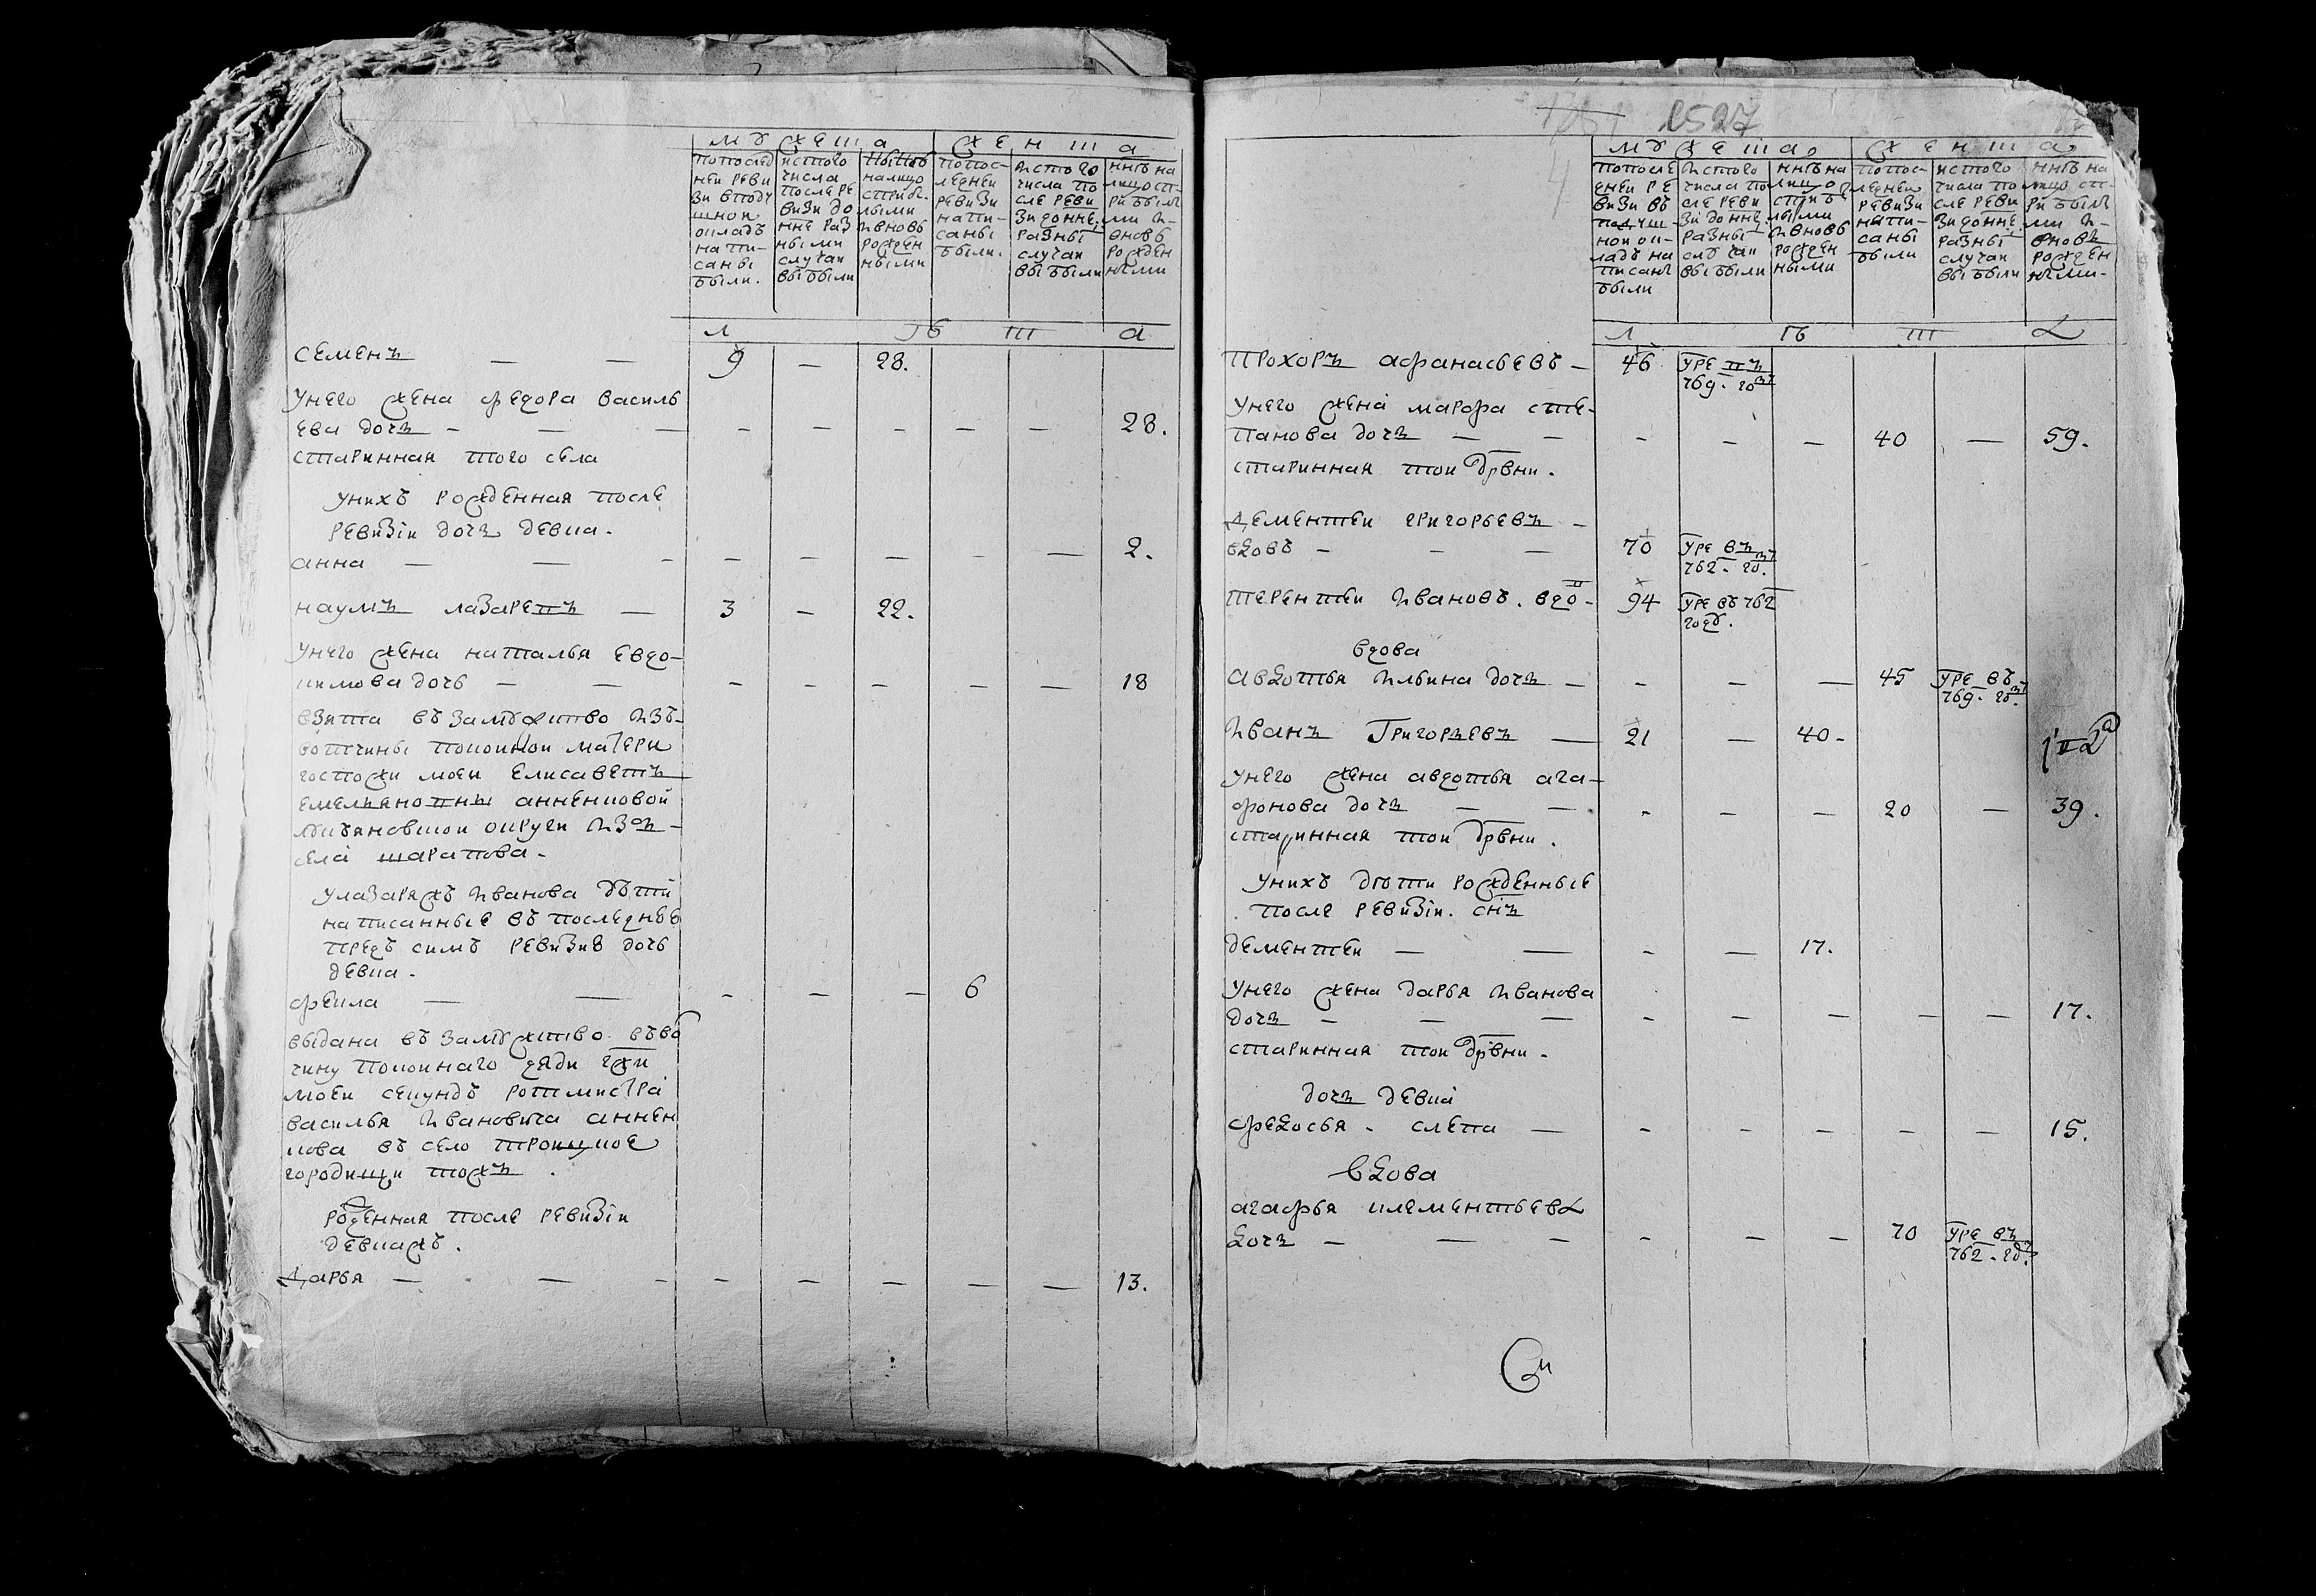 мужеска
женска
попослед
ней реви
зи вподу
шной
окладъ
напи-
саны
были.
истого
числа
после ре
визи до
нне раз
ными
случаи
выбыли
ннѣ
налицо
спри бы
лыми
ивновь
рожден
ными
попос-
ледней
ревизи
напи-
саны
были.
истого
числа по
сле реви
зи донне
разны
случаи
выбыли
ннѣ на
лицо сп-
ри былы
ми и-
вновь
рожден
ными
лѣта
семенъ — — 9 — 28.
унего жена федора василь
ева дочъ - — — - — - - — 28.
старинная того села
унихъ рожденная после
ревизіи дочъ девка.
анна — — - — — — — — 2.
наумъ лазаревъ — 3 — 22.
унего жена наталья евдо-
кимова дочь — — - — — — — 18
взята въ замужство изъ-
вотчины покойной матери
госпожи моей елисаветъ
емельяновны анненковой
округи изъ-
села шарапова.
улазаряжъ иванова дѣти
написанные въ последнее
предъ симъ ревизие дочь
девка.
фекла — — - — — 6
выдана въ замужство въво
чину покойнаго дяди гжи
моей секундъ ротмистра
василья ивановича аннен
кова въ село троицкое
городищи тожъ.
роденная после ревизіи
девкажъ.
дарья — — - — — — — — 13.
2527
мужеска
женска
попосле
дней ре
визи въ
подуш-
ной ок-
ладъ на
писаны
были
истого
числа по
сле реви
зи донне
разны
слу чаи
выбыли
ннѣ на
лицо
сприбы
лыми
ивновь
рожден
ными
попос-
ледней
ревизи
напи-
саны
были
истого
числа по
сле реви
зи донне
разны
случаи
выбыли
ннѣ на
лицо сп-
ри былы
ми и-
вновъ
рожден
ными-
лѣта
прохоръ афанасьевъ — 46 уме въ
769. го
унего жена марфа сте-
панова дочъ — — - - — 40 — 59.
старинная той дрвни.
дементей григорьевъ -
вдовъ - - — 70 уме въ
762. го.
терентей ивановъ. вдо- 94 уме въ 762
годѣ.
вдова
авдотья ильина дочъ — - — — 45 уме въ
769. го.
иванъ григорьевъ — 21 — 40-
унего жена авдотья ага-
фонова дочъ — — - - — 20 — 39.
старинная той дрвни.
унихъ дѣти рожденные
после ревизіи. снъ
дементей — — - — 17.
унего жена дарья иванова
дочъ - — — - — — — — 17.
старинная той дрвни.
дочъ девка
федосья - слепа — - - — — — 15.
вдова
агафья клементьева
дочъ — — - - — - 70 уме въ
762. го.